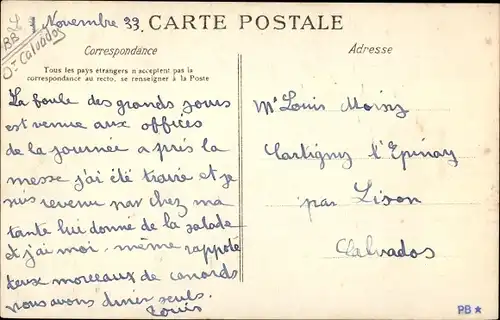 BB
Ø= Calvados
1 Novembre 33. CARTE POSTALE
Correspondance
Tous les pays étrangers n'acceptent pas la
correspondance au recto, se renseigner à la Poste
La foule des grands jours
est venue aux offices
de la journée après la
messe j'ai été traire et je
suis revenu par chez ma
tante lui donné de la salade
et j'ai moi même rapporté
deux morceaux de canards
nous avons dîner seuls.
Louis
Adresse
Mr Louis Moisy
Cartigny l'Epinay
par Lison
Calvados
PB